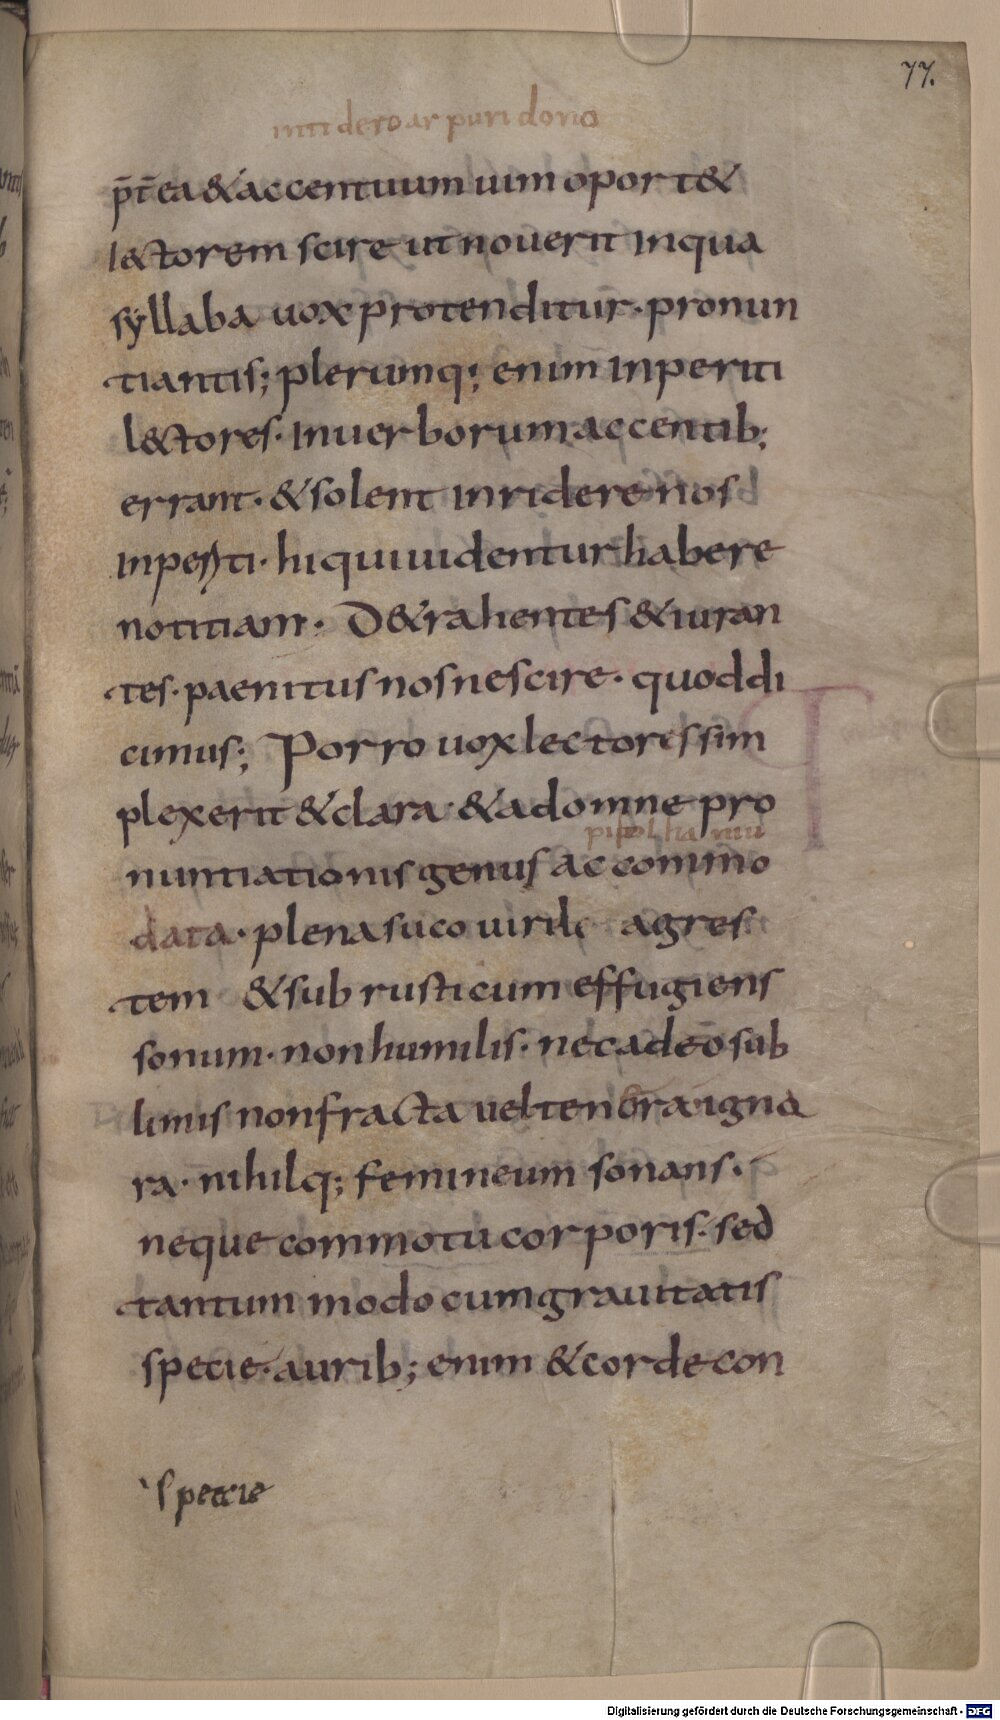 77.
inti dero ar puri dono
p̄t̄ ea & accentuum uim oport&
l&torem scire ut nouerit inqua
syllaba uox protenditur · pronun
tiantis; plerumq; enim inperiti
l&tores · inuerborum accentib;
errant · & solent inridere nos
inperiti · hi qui uidentur habere
notitiam · D&rahentes & iuran
tes · paenitus nos nescire · quod di
cimus; Porro uox lectores sim
plex erit & clara · & ad omne pro
nuntiationis genus accommo
data · plena suco uirile agres
tem & subrusticum effugiens
sonum · non humilis · nec adeo sub
limis non fracta uel tenera igna
ra · nihilq; femineum sonans ·
neque commotu corporis · sed
tantum modo cum grauitatis
specie · aurib; enim & corde con
speccie
Digitalisierung gefördert durch die Deutsche Forschungsgemeinschaft - DFG